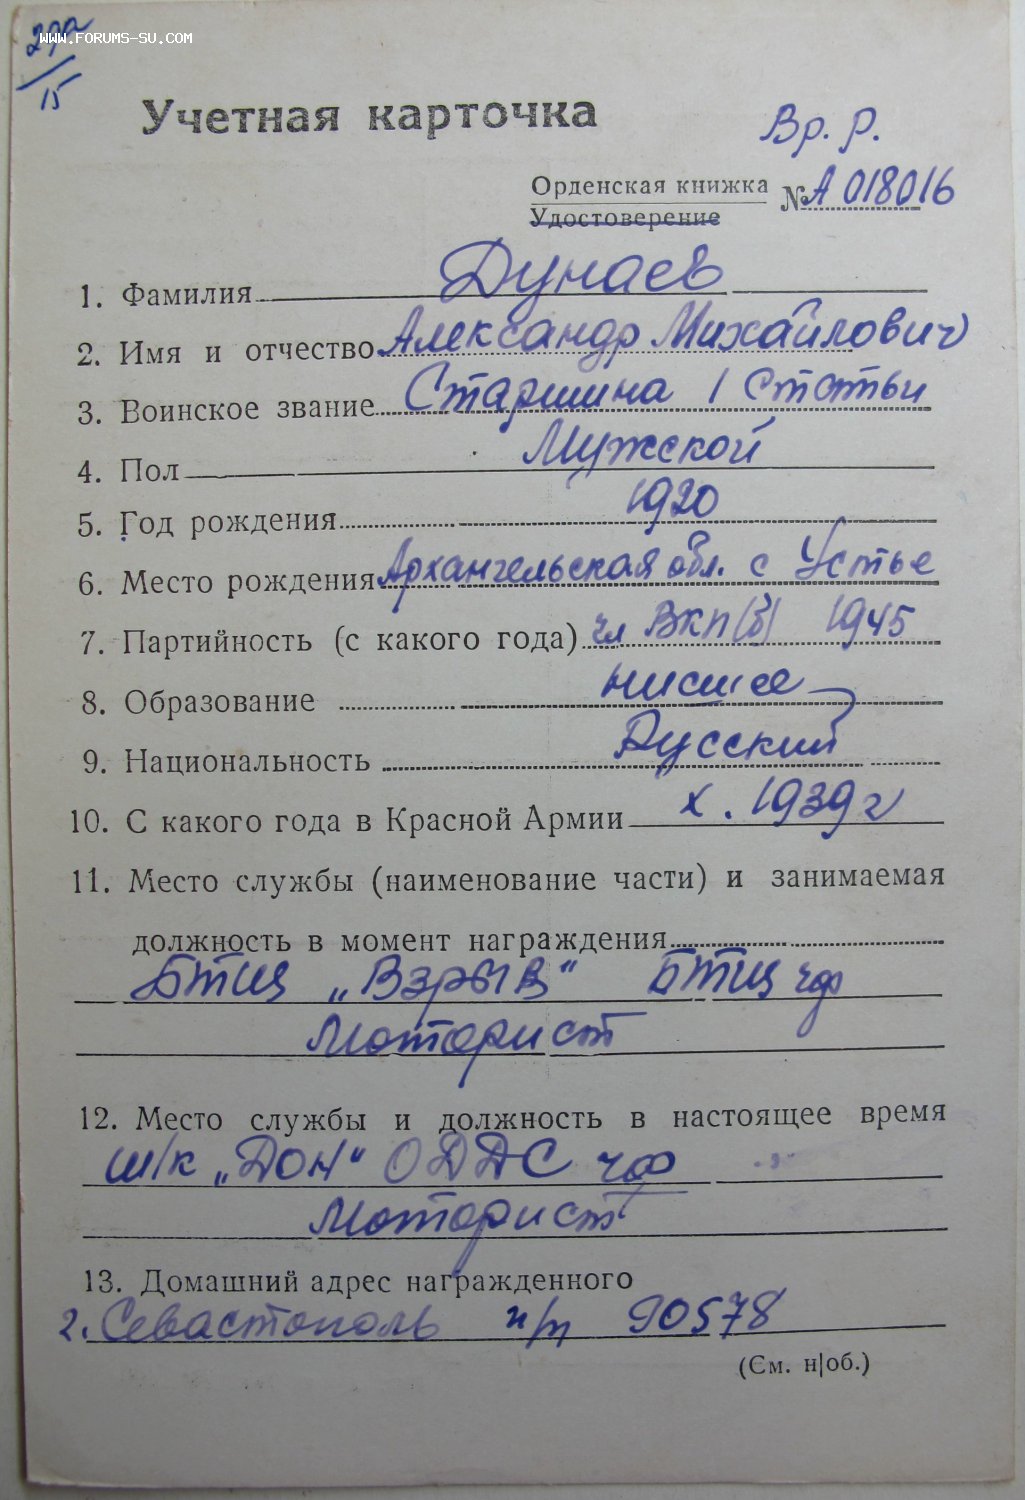 www.forums-su.com
29а
15
Учетная карточка
Вр. р.
Орденская книжка
Удостоверение
№ А 018016
1. Фамилия Дунаев
2. Имя и отчество Александр Михайлович
3. Воинское звание Старшина 1 статьи
4. Пол Мужской
5. Год рождения 1920
6. Место рождения Архангельская обл. с Устье
7. Партийность (с какого года) чл ВКП(б) 1945
8. Образование низшее
9. Национальность Русский
10. С какого года в Красной Армии X. 1939 г
11. Место службы (наименование части) и занимаемая
должность в момент награждения
БТЩ „Взрыв" БТЩ чф
Моторист
12. Место службы и должность в настоящее время
ш/к „Дон" ОДДС чф
Моторист
13. Домашний адрес награжденного
г. Севастополь п/п 90578
(См. н|об.)